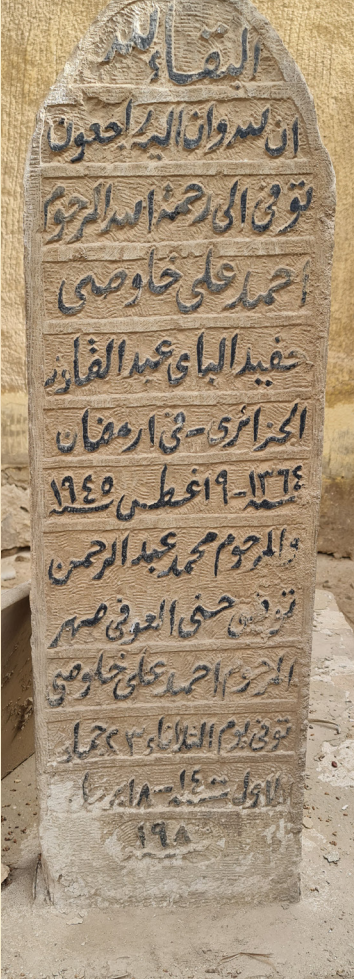 البقاء لله
ان لله وان اليه راجعون
توفى الى رحمة الله المرحوم
احمد على خلوصى
حفيد الباى عبد القادر
الجزائرى - فى ١ رمضان
سنة ١٣٦٤ - ٩ اغسطس سنة ١٩٤٥
والمرحوم محمد عبد الرحمن
توفيق حسنى العوفى صهر
المرحوم احمد على خلوصى
توفى يوم الثلاثاء ٢٣ جماد
الاول سنة ١٤٠٠ - ٨ ابريل
سنة ١٩٨